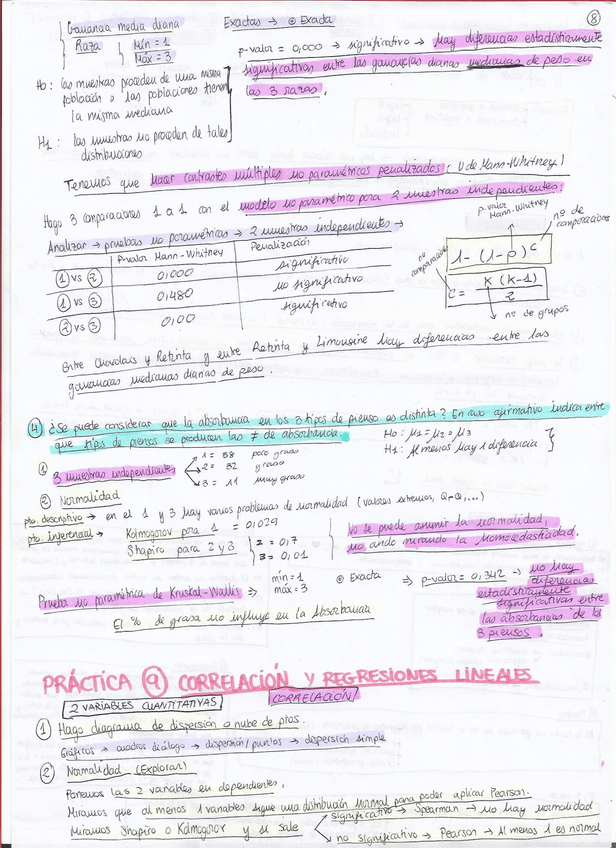 Ganancia media diana
Raza
Mín = 1
Máx = 3
Exactas → ⊙ Exacta
8
p-valor = 0,000 → significativo → Hay diferencias estadísticamente
significativas entre las ganancias dianas medianas de peso en
las 3 razas.
Ho: las muestras proceden de una misma
población o las poblaciones tienen
la misma mediana
H1: las muestras no proceden de tales
distribuciones
Tenemos que hacer contrastes múltiples no paramétricos penalizados (U de Mann-Whitney)
Hago 3 comparaciones 1 a 1 con el modelo no paramétrico para 2 muestras independientes:
Analizar → pruebas no paramétricas → 2 muestras independientes →
p-valor Mann-Whitney
Penalización
1 vs 2
0,000
significativo
1 vs 3
0,480
no significativo
2 vs 3
0,00
significativo
p-valor
Mann-Whitney
nº de
comparaciones
no
comparaciones
1-(1-p)^c
c = K(K-1)
2
nº de grupos
Entre Charolais y Retinta y entre Retinta y Limousine hay diferencias entre las
ganancias medianas dianas de peso.
4 ¿Se puede considerar que la absorbancia en los 3 tipos de pienso es distinta? En caso afirmativo indicar entre
que tipos de piensos se producen las ≠ de absorbancia.
Ho: μ1 = μ2 = μ3
H1: Al menos hay 1 diferencia
1 3 muestras independientes
1 = 58 poco graso
2 = 32 graso
3 = 11 muy graso
2 Normalidad
pto. descriptivo → en el 1 y 3 hay varios problemas de normalidad (valores extremos, Q-Q,...)
pto. inferencial → Kolmogorov para 1 = 0,029
Shapiro para 2 y 3
2 = 0,17
3 = 0,01
No se puede asumir la normalidad,
no ando mirando la homocedasticidad.
Prueba no paramétrica de Kruskal-Wallis ⇒
mín = 1
máx = 3
⊙ Exacta
⇒ p-valor = 0,342 → no hay
diferencias
estadísticamente
significativas entre
las absorbancias de los
3 piensos.
El % de grasa no influye en la Absorbancia
PRÁCTICA 9 CORRELACIÓN Y REGRESIONES LINEALES
2 VARIABLES CUANTITATIVAS
CORRELACIÓN
1 Hago diagrama de dispersión o nube de ptos.
Gráficos → cuadros diálogo → dispersión/puntos → dispersión simple
2 Normalidad (Explorar)
Ponemos las 2 variables en dependientes.
Miramos que al menos 1 variables sigue una distribución normal para poder aplicar Pearson.
Miramos Shapiro o Kolmogorov y si sale
significativo → Spearman → no hay normalidad
no significativo → Pearson → Al menos 1 es normal